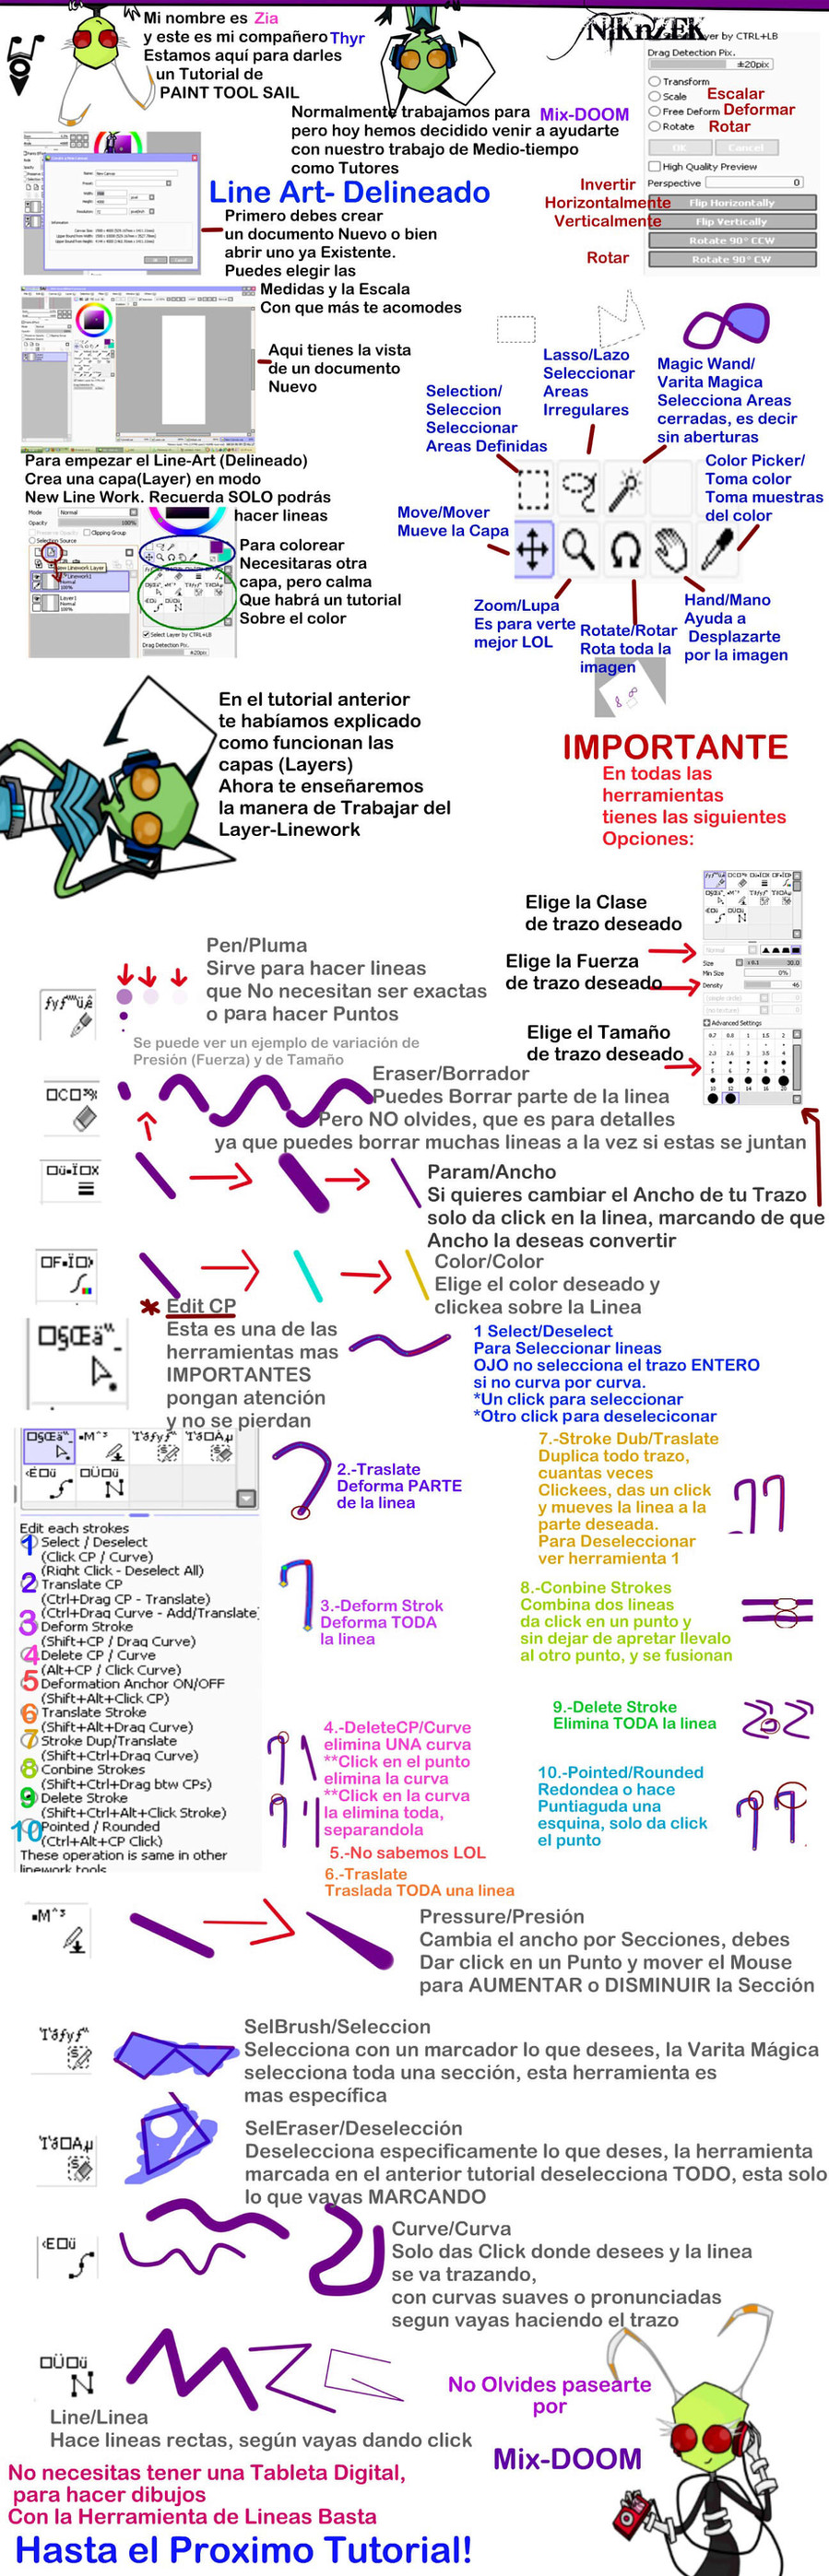 Mi nombre es Zia
y este es mi compañero Thyr
Estamos aquí para darles
un Tutorial de
PAINT TOOL SAIL
Normalmente trabajamos para Mix-DOOM
pero hoy hemos decidido venir a ayudarte
con nuestro trabajo de Medio-tiempo
como Tutores
yer by CTRL+LB
Drag Detection Pix.
±20pix
Transform
Scale Escalar
Free Deform Deformar
Rotate Rotar
OK Cancel
High Quality Preview
Perspective 0
Invertir
Horizontalmente
Verticalmente
Rotar
Flip Horizontally
Flip Vertically
Rotate 90° CCW
Rotate 90° CW
Line Art- Delineado
Primero debes crear
un documento Nuevo o bien
abrir uno ya Existente.
Puedes elegir las
Medidas y la Escala
Con que más te acomodes
Aqui tienes la vista
de un documento
Nuevo
Selection/
Seleccion
Seleccionar
Areas Definidas
Lasso/Lazo
Seleccionar
Areas
Irregulares
Magic Wand/
Varita Magica
Selecciona Areas
cerradas, es decir
sin aberturas
Color Picker/
Toma color
Toma muestras
del color
Move/Mover
Mueve la Capa
Zoom/Lupa
Es para verte
mejor LOL
Rotate/Rotar
Rota toda la
imagen
Hand/Mano
Ayuda a
Desplazarte
por la imagen
Para empezar el Line-Art (Delineado)
Crea una capa(Layer) en modo
New Line Work. Recuerda SOLO podrás
hacer lineas
Mode Normal
Opacity 100%
Clipping Group
Selection Source
New Linework Layer
Linework1
Normal
100%
Layer1
Normal
100%
Select Layer by CTRL+LB
Drag Detection Pix.
±20pix
Para colorear
Necesitaras otra
capa, pero calma
Que habrá un tutorial
Sobre el color
En el tutorial anterior
te habíamos explicado
como funcionan las
capas (Layers)
Ahora te enseñaremos
la manera de Trabajar del
Layer-Linework
IMPORTANTE
En todas las
herramientas
tienes las siguientes
Opciones:
Elige la Clase
de trazo deseado
Elige la Fuerza
de trazo deseado
Elige el Tamaño
de trazo deseado
Normal
Size x 0.1 30.0
Min Size 0%
Density 46
Advanced Settings
0.7 0.8 1 1.5 2
2.3 2.6 3 3.5 4
5 6 7 8 9
10 12 14 16 20
Pen/Pluma
Sirve para hacer lineas
que No necesitan ser exactas
o para hacer Puntos
Se puede ver un ejemplo de variación de
Presión (Fuerza) y de Tamaño
Eraser/Borrador
Puedes Borrar parte de la linea
Pero NO olvides, que es para detalles
ya que puedes borrar muchas lineas a la vez si estas se juntan
Param/Ancho
Si quieres cambiar el Ancho de tu Trazo
solo da click en la linea, marcando de que
Ancho la deseas convertir
Color/Color
Elige el color deseado y
clickea sobre la Linea
* Edit CP
Esta es una de las
herramientas mas
IMPORTANTES
pongan atención
y no se pierdan
1 Select/Deselect
Para Seleccionar lineas
OJO no selecciona el trazo ENTERO
si no curva por curva.
*Un click para seleccionar
*Otro click para deseleciconar
Edit each strokes
1 Select / Deselect
(Click CP / Curve)
(Right Click - Deselect All)
2 Translate CP
(Ctrl+Drag CP - Translate)
(Ctrl+Drag Curve - Add/Translate
3 Deform Stroke
(Shift+CP / Drag Curve)
4 Delete CP / Curve
(Alt+CP / Click Curve)
5 Deformation Anchor ON/OFF
(Shift+Alt+Click CP)
6 Translate Stroke
(Shift+Alt+Drag Curve)
7 Stroke Dup/Translate
(Shift+Ctrl+Drag Curve)
8 Conbine Strokes
(Shift+Ctrl+Drag btw CPs)
9 Delete Stroke
(Shift+Ctrl+Alt+Click Stroke)
10 Pointed / Rounded
(Ctrl+Alt+CP Click)
These operation is same in other
linework tools
2.-Traslate
Deforma PARTE
de la linea
3.-Deform Strok
Deforma TODA
la linea
4.-DeleteCP/Curve
elimina UNA curva
**Click en el punto
elimina la curva
**Click en la curva
la elimina toda,
separandola
5.-No sabemos LOL
6.-Traslate
Traslada TODA una linea
7.-Stroke Dub/Traslate
Duplica todo trazo,
cuantas veces
Clickees, das un click
y mueves la linea a la
parte deseada.
Para Deseleccionar
ver herramienta 1
8.-Conbine Strokes
Combina dos lineas
da click en un punto y
sin dejar de apretar llevalo
al otro punto, y se fusionan
9.-Delete Stroke
Elimina TODA la linea
10.-Pointed/Rounded
Redondea o hace
Puntiaguda una
esquina, solo da click
el punto
Pressure/Presión
Cambia el ancho por Secciones, debes
Dar click en un Punto y mover el Mouse
para AUMENTAR o DISMINUIR la Sección
SelBrush/Seleccion
Selecciona con un marcador lo que desees, la Varita Mágica
selecciona toda una sección, esta herramienta es
mas específica
SelEraser/Deselección
Deselecciona especificamente lo que deses, la herramienta
marcada en el anterior tutorial deselecciona TODO, esta solo
lo que vayas MARCANDO
Curve/Curva
Solo das Click donde desees y la linea
se va trazando,
con curvas suaves o pronunciadas
segun vayas haciendo el trazo
Line/Linea
Hace lineas rectas, según vayas dando click
No Olvides pasearte
por
Mix-DOOM
No necesitas tener una Tableta Digital,
para hacer dibujos
Con la Herramienta de Lineas Basta
Hasta el Proximo Tutorial!